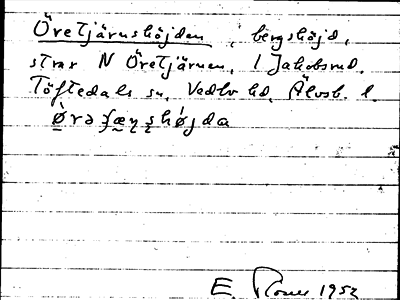 Öretjärnshöjden, bergshöjd,
strax N Öretjärnen, 1 Jakobsrud.
Töftedals sn. Vedbo hd. Älvsb. l.
E. 1952